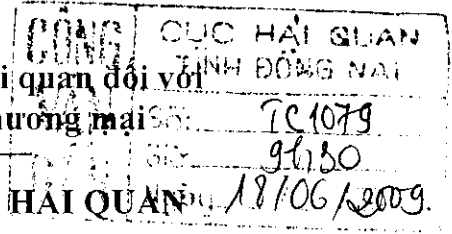 CÔNG CỤC HẢI QUAN
TỈNH ĐỒNG NAI
i quan đối với
hương mại Số: TC1079
Giờ: 9h30
HẢI QUAN 18/06/2009.